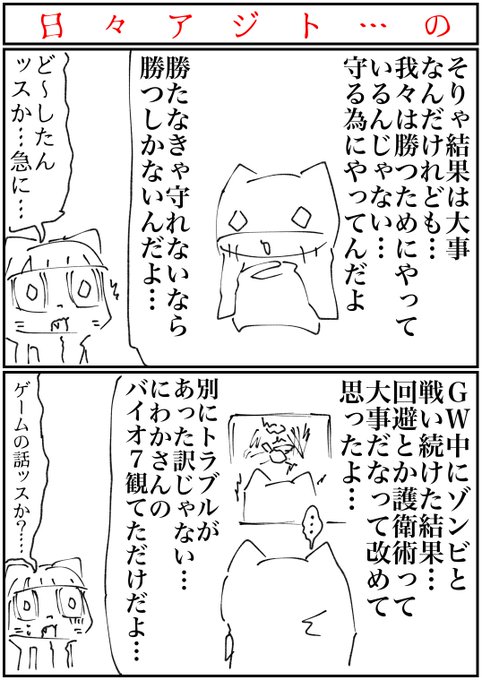 の…トジア々日
そりゃ結果は大事
なんだけれども…
我々は勝つためにやって
いるんじゃない…
守る為にやってんだよ
勝たなきゃ守れないなら
勝つしかないんだよ…
ど〜したん
ッスか…急に…
GW中にゾンビと
戦い続けた結果…
回避とか護衛術って
大事だなって改めて
思ったよ…
…
別にトラブルが
あった訳じゃない…
にわかさんの
バイオ7観てただけだよ…
ゲームの話ッスか?…